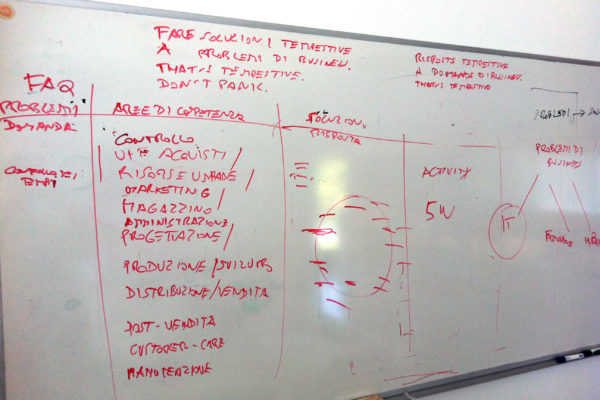 FARE SOLUZIONI TEMPESTIVE
A PROBLEMI DI BUSINESS.
THAT'S TEMPESTIVE.
DON'T PANIC.
RISPOSTE TEMPESTIVE
A DOMANDE DI BUSINESS.
THAT'S TEMPESTIVE
FAQ
PROBLEMI
AREE DI COMPETENZA
SOLUZIONI
PROBLEMI →
DOMANDA
RISPOSTA
CONTROLLO
UFF. ACQUISTI
CONTROLLO DEI
TEMPI
RISORSE UMANE
MARKETING
MAGAZZINO
AMMINISTRAZIONE
PROGETTAZIONE
PRODUZIONE/SVILUPPO
DISTRIBUZIONE/VENDITA
POST-VENDITA
CUSTOMER-CARE
MANUTENZIONE
ACTIVITY
5W
PROBLEMI DI
BUSINESS
IT